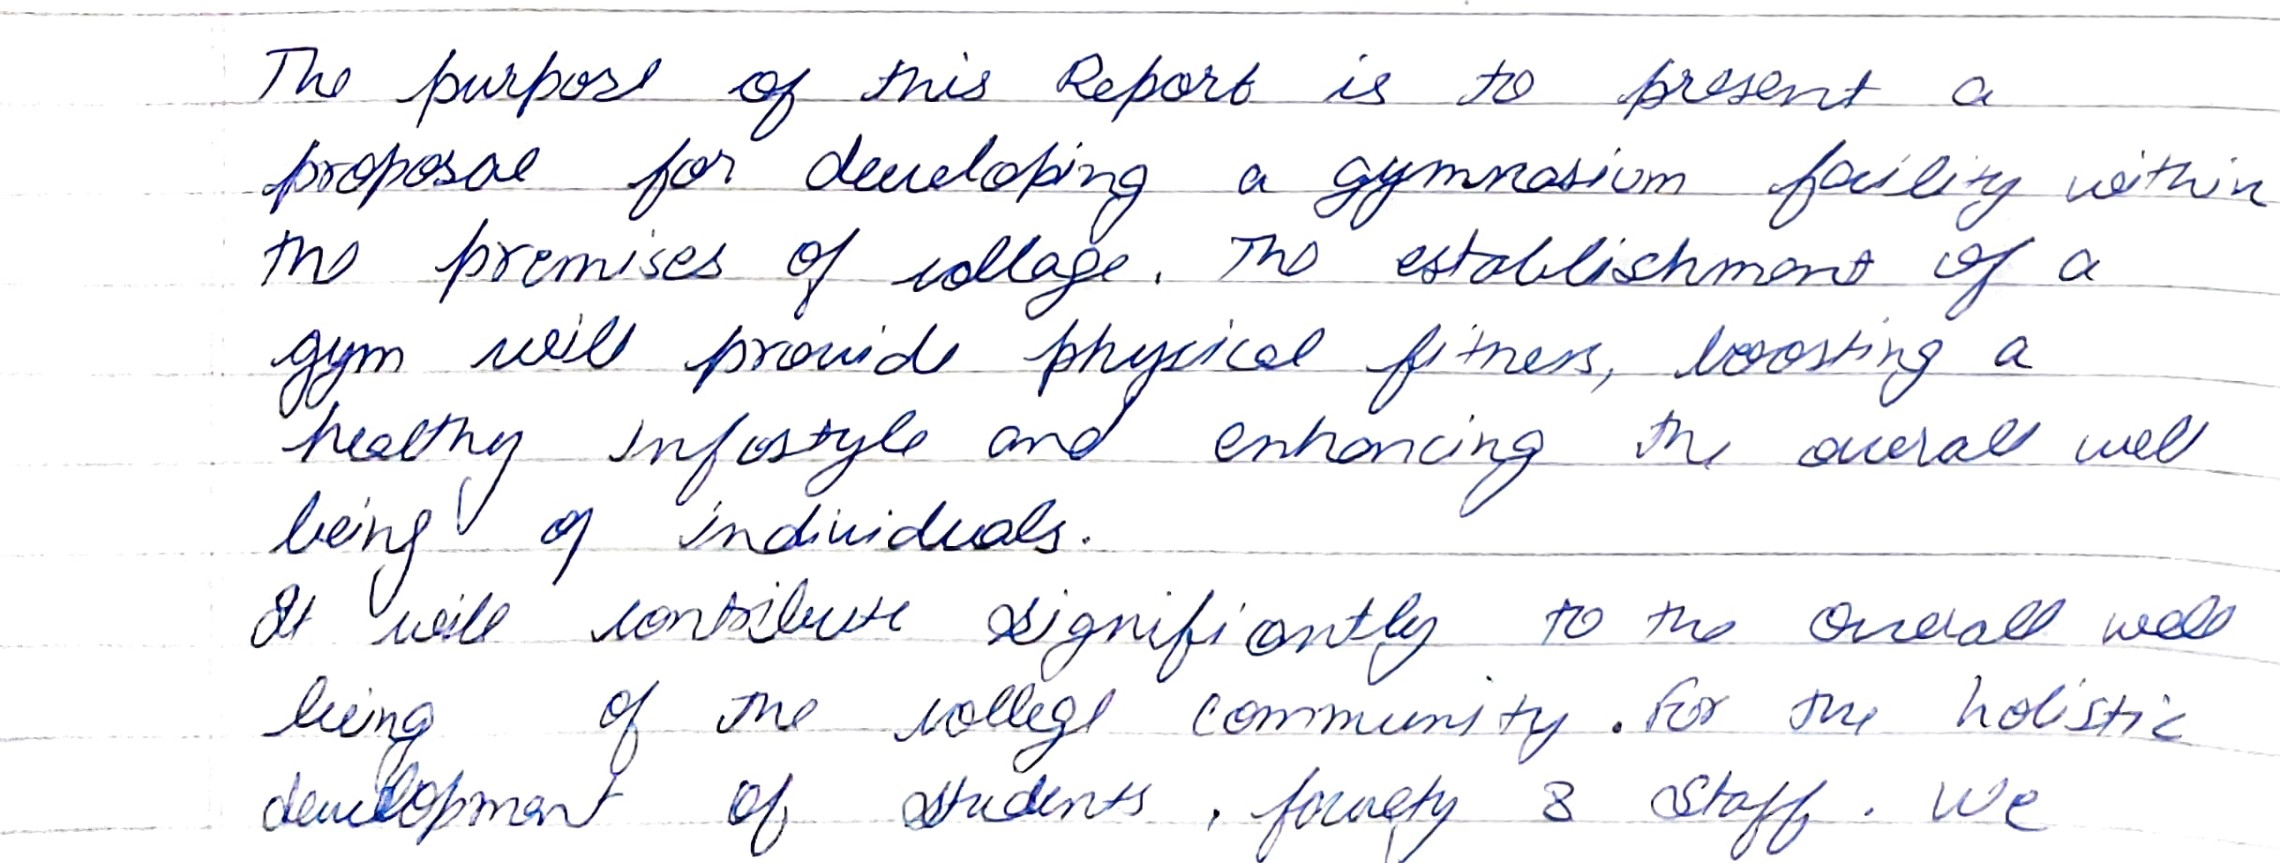 The purpose of this Report is to present a
proposal for developing a gymnasium facility within
the premises of collage. The establishment of a
gym will provide physical fitness, boosting a
healthy infostyle and enhancing the overall well
being of individuals.
It will contribute significantly to the overall well
being of the college community. For the holistic
development of students, faculty & Staff. We